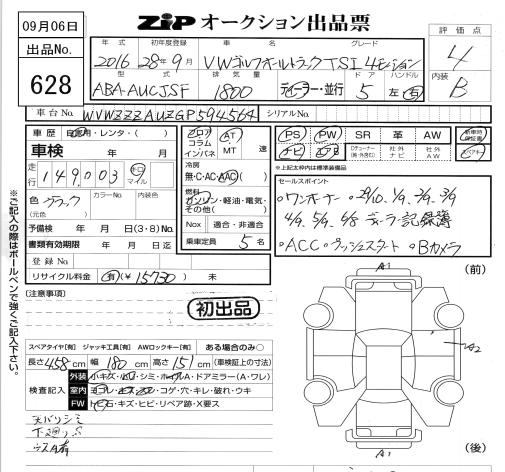 09月06日
出品No.
628
ZIP オークション出品票
年式 初年度登録 車名 グレード
2016 28年9月 VWゴルフオールトラック TSI 4モーション
型式 排気量 ドア ハンドル
ABA-AUCJSF 1800 ディーラー・並行 5 左・右
評価点
4
内装
B
車台No. WVWZZZAUZGP594564 シリアルNo.
車歴 自家用・レンタ・( )
車検 年 月
走行 149,003 キロ マイル
色 ブラック カラーNo. 内装色
(元色 )
予備検 年 月 日(3・8)No.
書類有効期限 年 月 日迄
登録No.
リサイクル料金 有(¥ 15730 ) 未
フロア コラム インパネ
AT MT 速
冷房
無・C・AC(AAC)
燃料
ガソリン・軽油・電気・その他( )
Nox 適合・非適合
乗車定員 5 名
PS PW SR 革 AW 新車時保証書
ナビ エアB 社外ナビ 社外AW
*上記太枠内は標準装備品
セールスポイント
・ワンオーナー ・29/10. 1/9. 2/9. 3/9
4/9. 5/9. 6/8 ディーラー記録簿
・ACC・プッシュスタート ・Bカメラ
※ご記入の際はボールペンで強くご記入下さい。
[注意事項]
初出品
スペアタイヤ[有] ジャッキ工具[有] AWロックキー[有] ある場合のみ○
長さ 458 cm 幅 180 cm 高さ 151 cm (車検証上の寸法)
検査記入
外装 小キズ・凹・シミ・ホイルA・ドアミラー(A・ワレ)
室内 ヨゴレ・キズ・スレ・コゲ・穴・キレ・破れ・ウキ
FW トビ石・キズ・ヒビ・リペア跡・X要ス
天バリシミ
下廻りS
ウスA有
(前)
A1
A2
A1
(後)